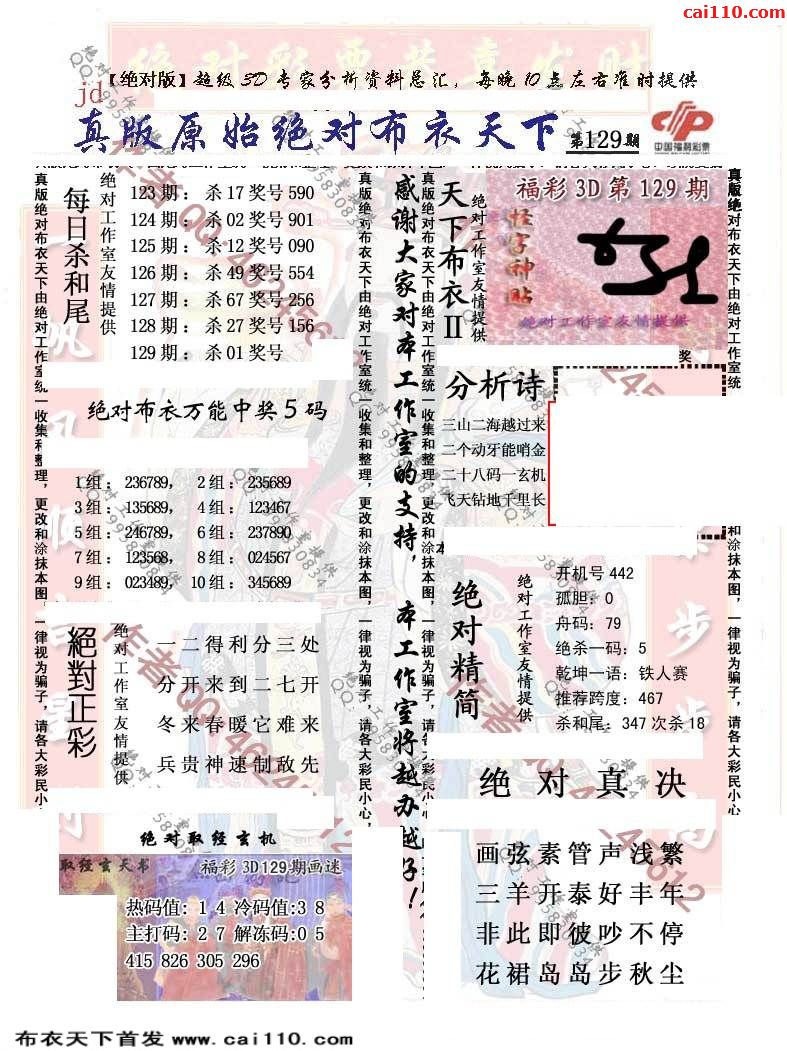 cai110.com
【绝对版】超级3D专家分析资料总汇，每晚10点左右准时提供
jd
真版原始绝对布衣天下
第129期
中国福利彩票
每日杀和尾
绝对工作室友情提供
123期：杀17奖号590
124期：杀02奖号901
125期：杀12奖号090
126期：杀49奖号554
127期：杀67奖号256
128期：杀27奖号156
129期：杀01奖号
绝对布衣万能中奖5码
1组：236789， 2组：235689
3组：135689， 4组：123467
5组：246789， 6组：237890
7组：123568， 8组：024567
9组：023489， 10组：345689
絕對正彩
绝对工作室友情提供
一二得利分三处
分开来到二七开
冬来春暖它难来
兵贵神速制敌先
绝对取经玄机
取经玄天书
福彩3D129期画迷
热码值：14冷码值:38
主打码：27解冻码:05
415 826 305 296
真版绝对布衣天下由绝对工作室统一收集和整理，更改和涂抹本图，一律视为骗子，请各大彩民小心，
感谢大家对本工作室的支持，本工作室将越办越好！
天下布衣II
绝对工作室友情提供
福彩3D第129期
怪字神贴
绝对工作室友情提供
奖
分析诗
三山二海越过来
二个动牙能哨金
二十八码一玄机
飞天钻地千里长
绝对精简
绝对工作室友情提供
开机号442
孤胆：0
舟码：79
绝杀一码：5
乾坤一语：铁人赛
推荐跨度：467
杀和尾：347次杀18
绝对真决
画弦素管声浅繁
三羊开泰好丰年
非此即彼吵不停
花裙岛岛步秋尘
布衣天下首发 www.cai110.com